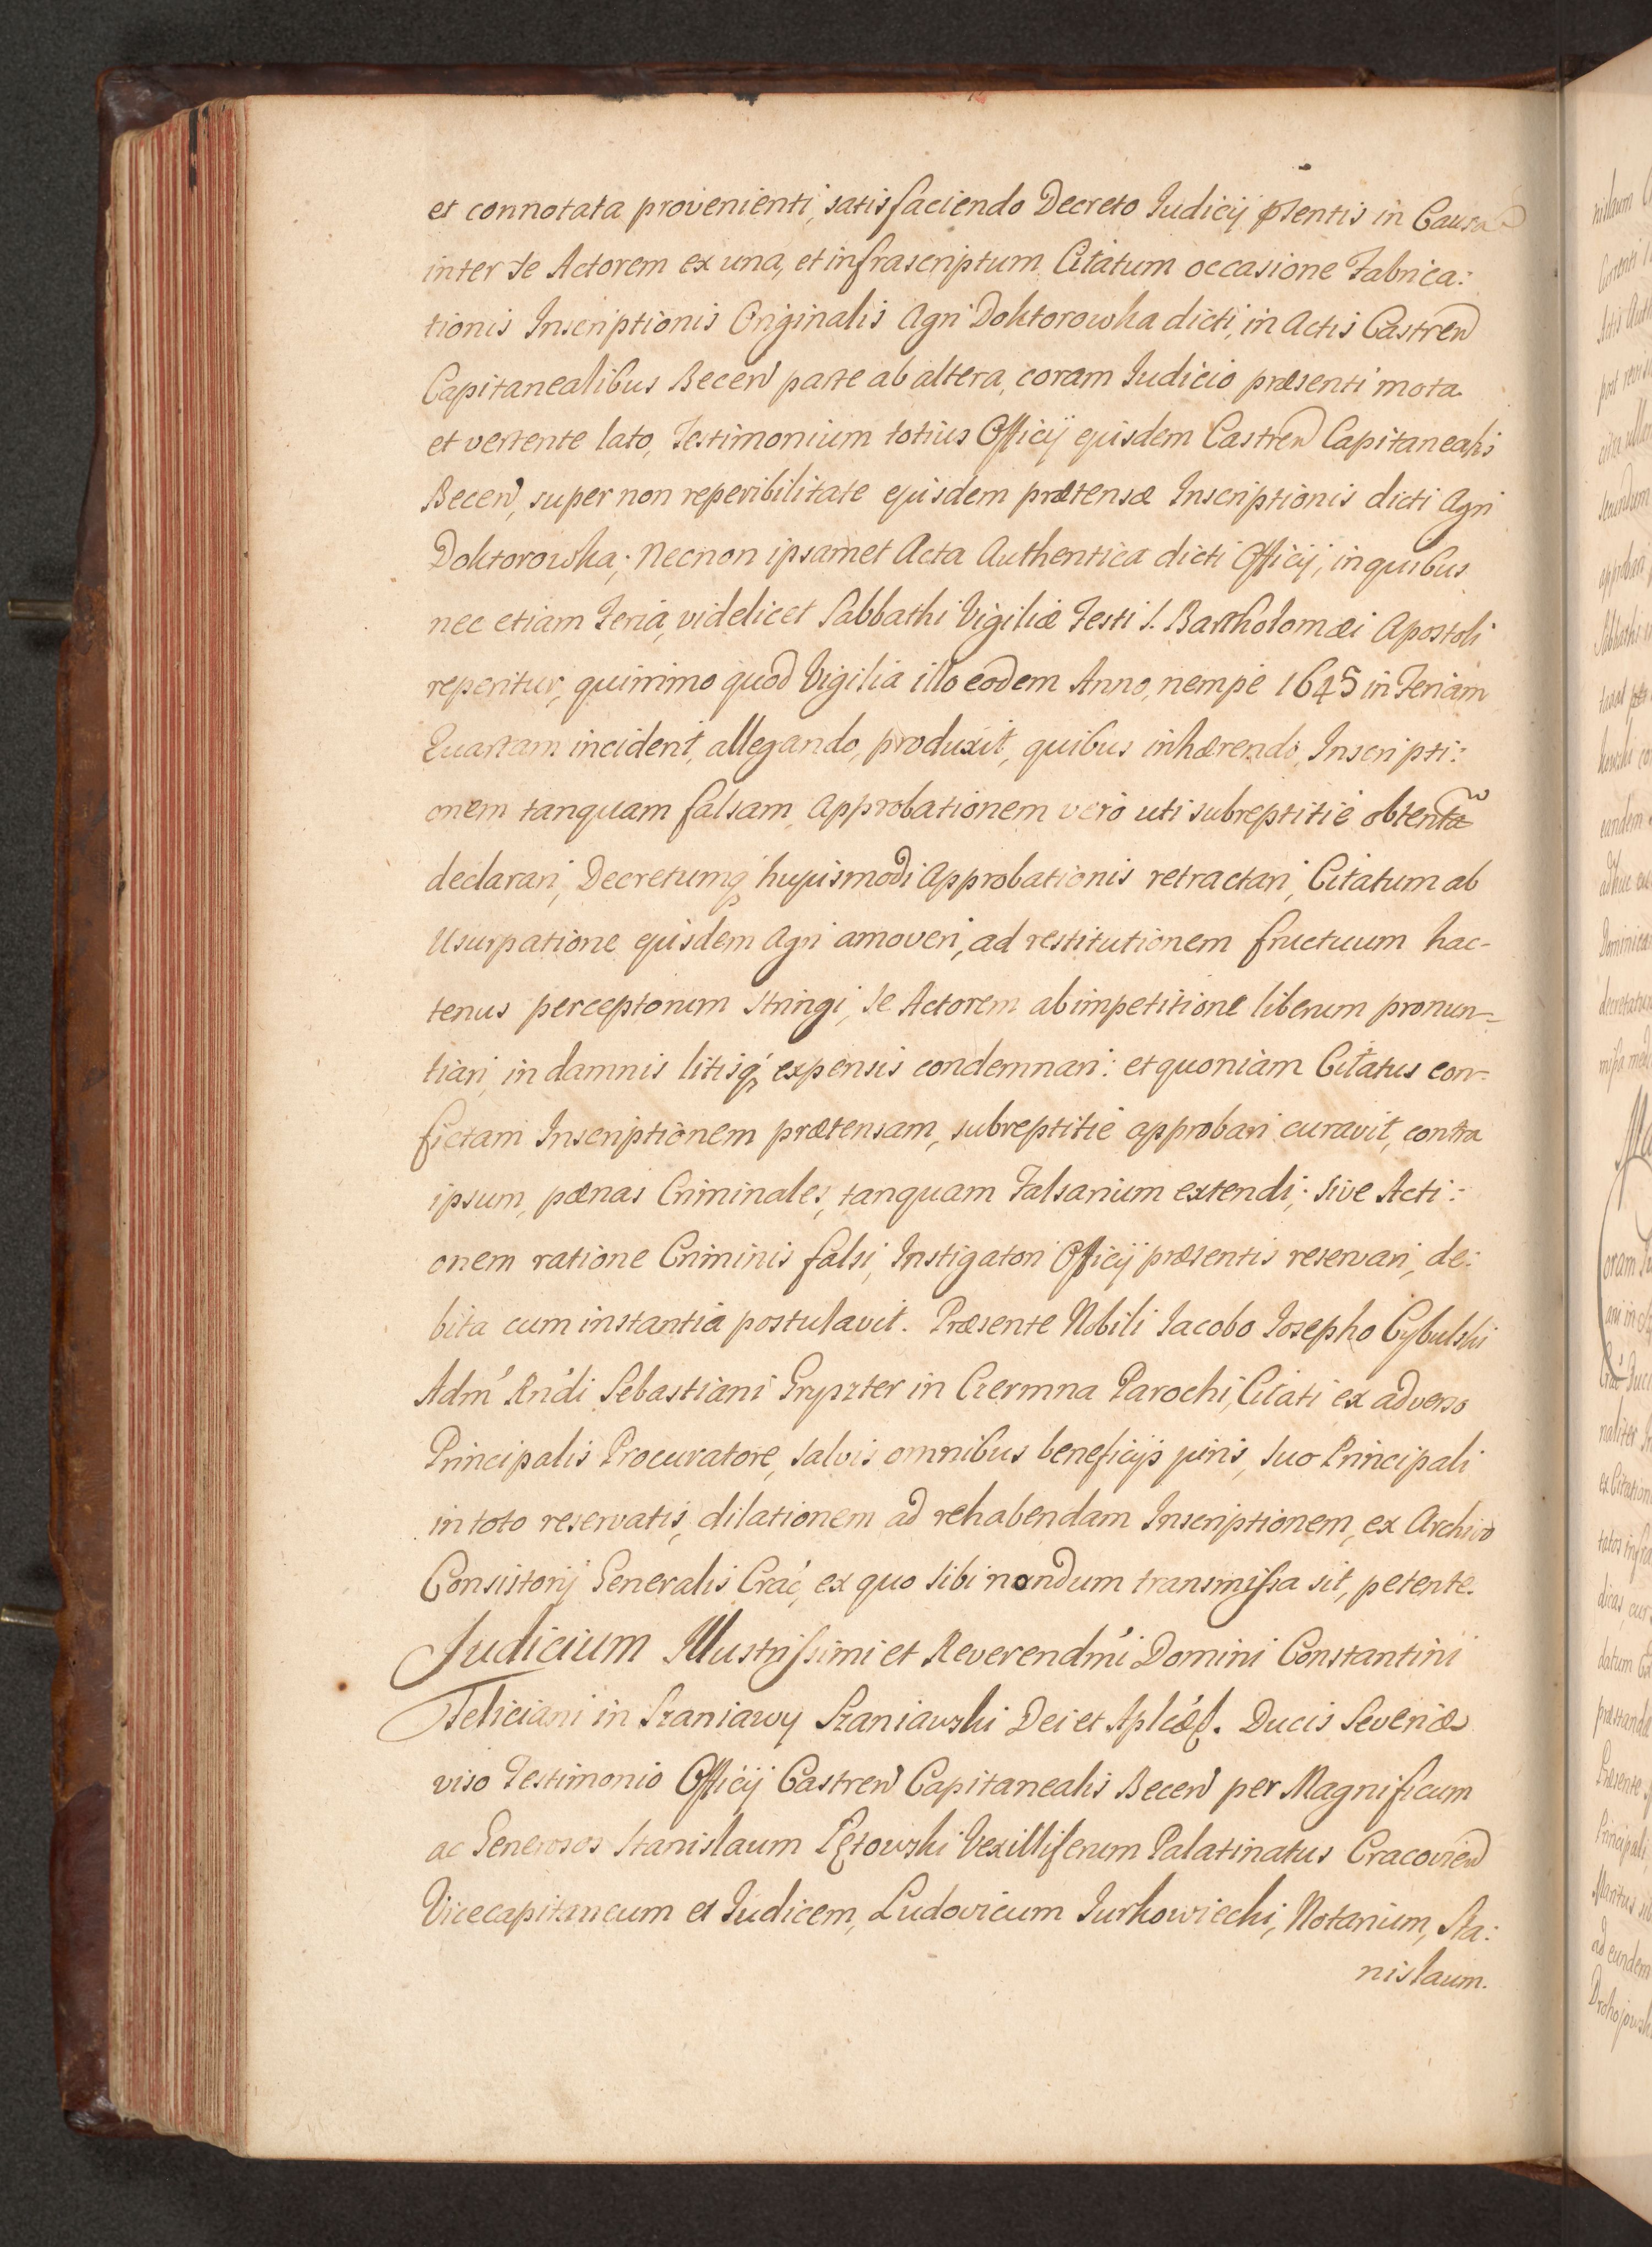 et connotata provenienti, satisfaciendo Decreto Iudicij pſentis in Causa
inter se Actorem ex una, et infrascriptum Citatum occasione Fabrica:
tionis Inscriptionis Originalis Agri Doktorowka dicti, in Actis Castren̄
Capitanealibus Becen̄ parte ab altera, coram Iudicio præsenti mota
et vertente lato, Testimonium totius Officij ejusdem Castren̄ Capitanealis
Becen̄, super non reperibilitate ejusdem prætensæ Inscriptionis dicti Agri
Doktorowka; Necnon ipsamet Acta Authentica dicti Officij, in quibus
nec etiam Feria, videlicet Sabbathi Vigiliæ Festi S. Bartholomæi Apostoli
reperitur, quinimo quod Vigilia illo eodem Anno, nempe 1645 in Feriam
Quartam incident, allegando, produxit, quibus inhærendo, Inscripti:
onem tanquam falsam, Approbationem vero uti subreptitie obtentã
declarari, Decretumq, hujusmodi Approbationis retractari, Citatum ab
Usurpatione ejusdem Agri amoveri, ad restitutionem fructuum hac-
tenus perceptorum stringi, se Actorem ab impetitione liberum pronun-
tiari, in damnis litisq, expensis condemnari: et quoniam Citatus con-
fictam Inscriptionem prætensam, subreptitie approbari curavit, contra
ipsum, pænas Criminales, tanquam Falsarium extendi; sive Acti:
onem ratione Criminis falsi, Instigatori Officij præsentis reservari, de:
bita cum instantia postulavit. Præsente Nobili Iacobo Iosepho Cybulski
Adm' Rn'di Sebastiani Gryszter in Czermna Parochi, Citati ex adverso
Principalis Procuratore, salvis omnibus beneficijs juris, suo Principali
in toto reservatis, dilationem ad rehabendam Inscriptionem, ex Archivo
Consistorij Generalis Crac', ex quo sibi nondum transmiſsa sit, petente.
Judicium Illustriſsimi et Reverendm'i Domini Constantini
Feliciani in Szaniawy Szaniawski Dei et Aplicæ S. Ducis Severiæ
viso Testimonio Officij Castren̄ Capitanealis Becen̄ per Magnificum
ac Generosos Stanislaum Łętowski Vexilliferum Palatinatus Cracovien̄
Vicecapitaneum et Iudicem, Ludovicum Iurkowiecki, Notarium, Sta:
nislaum.